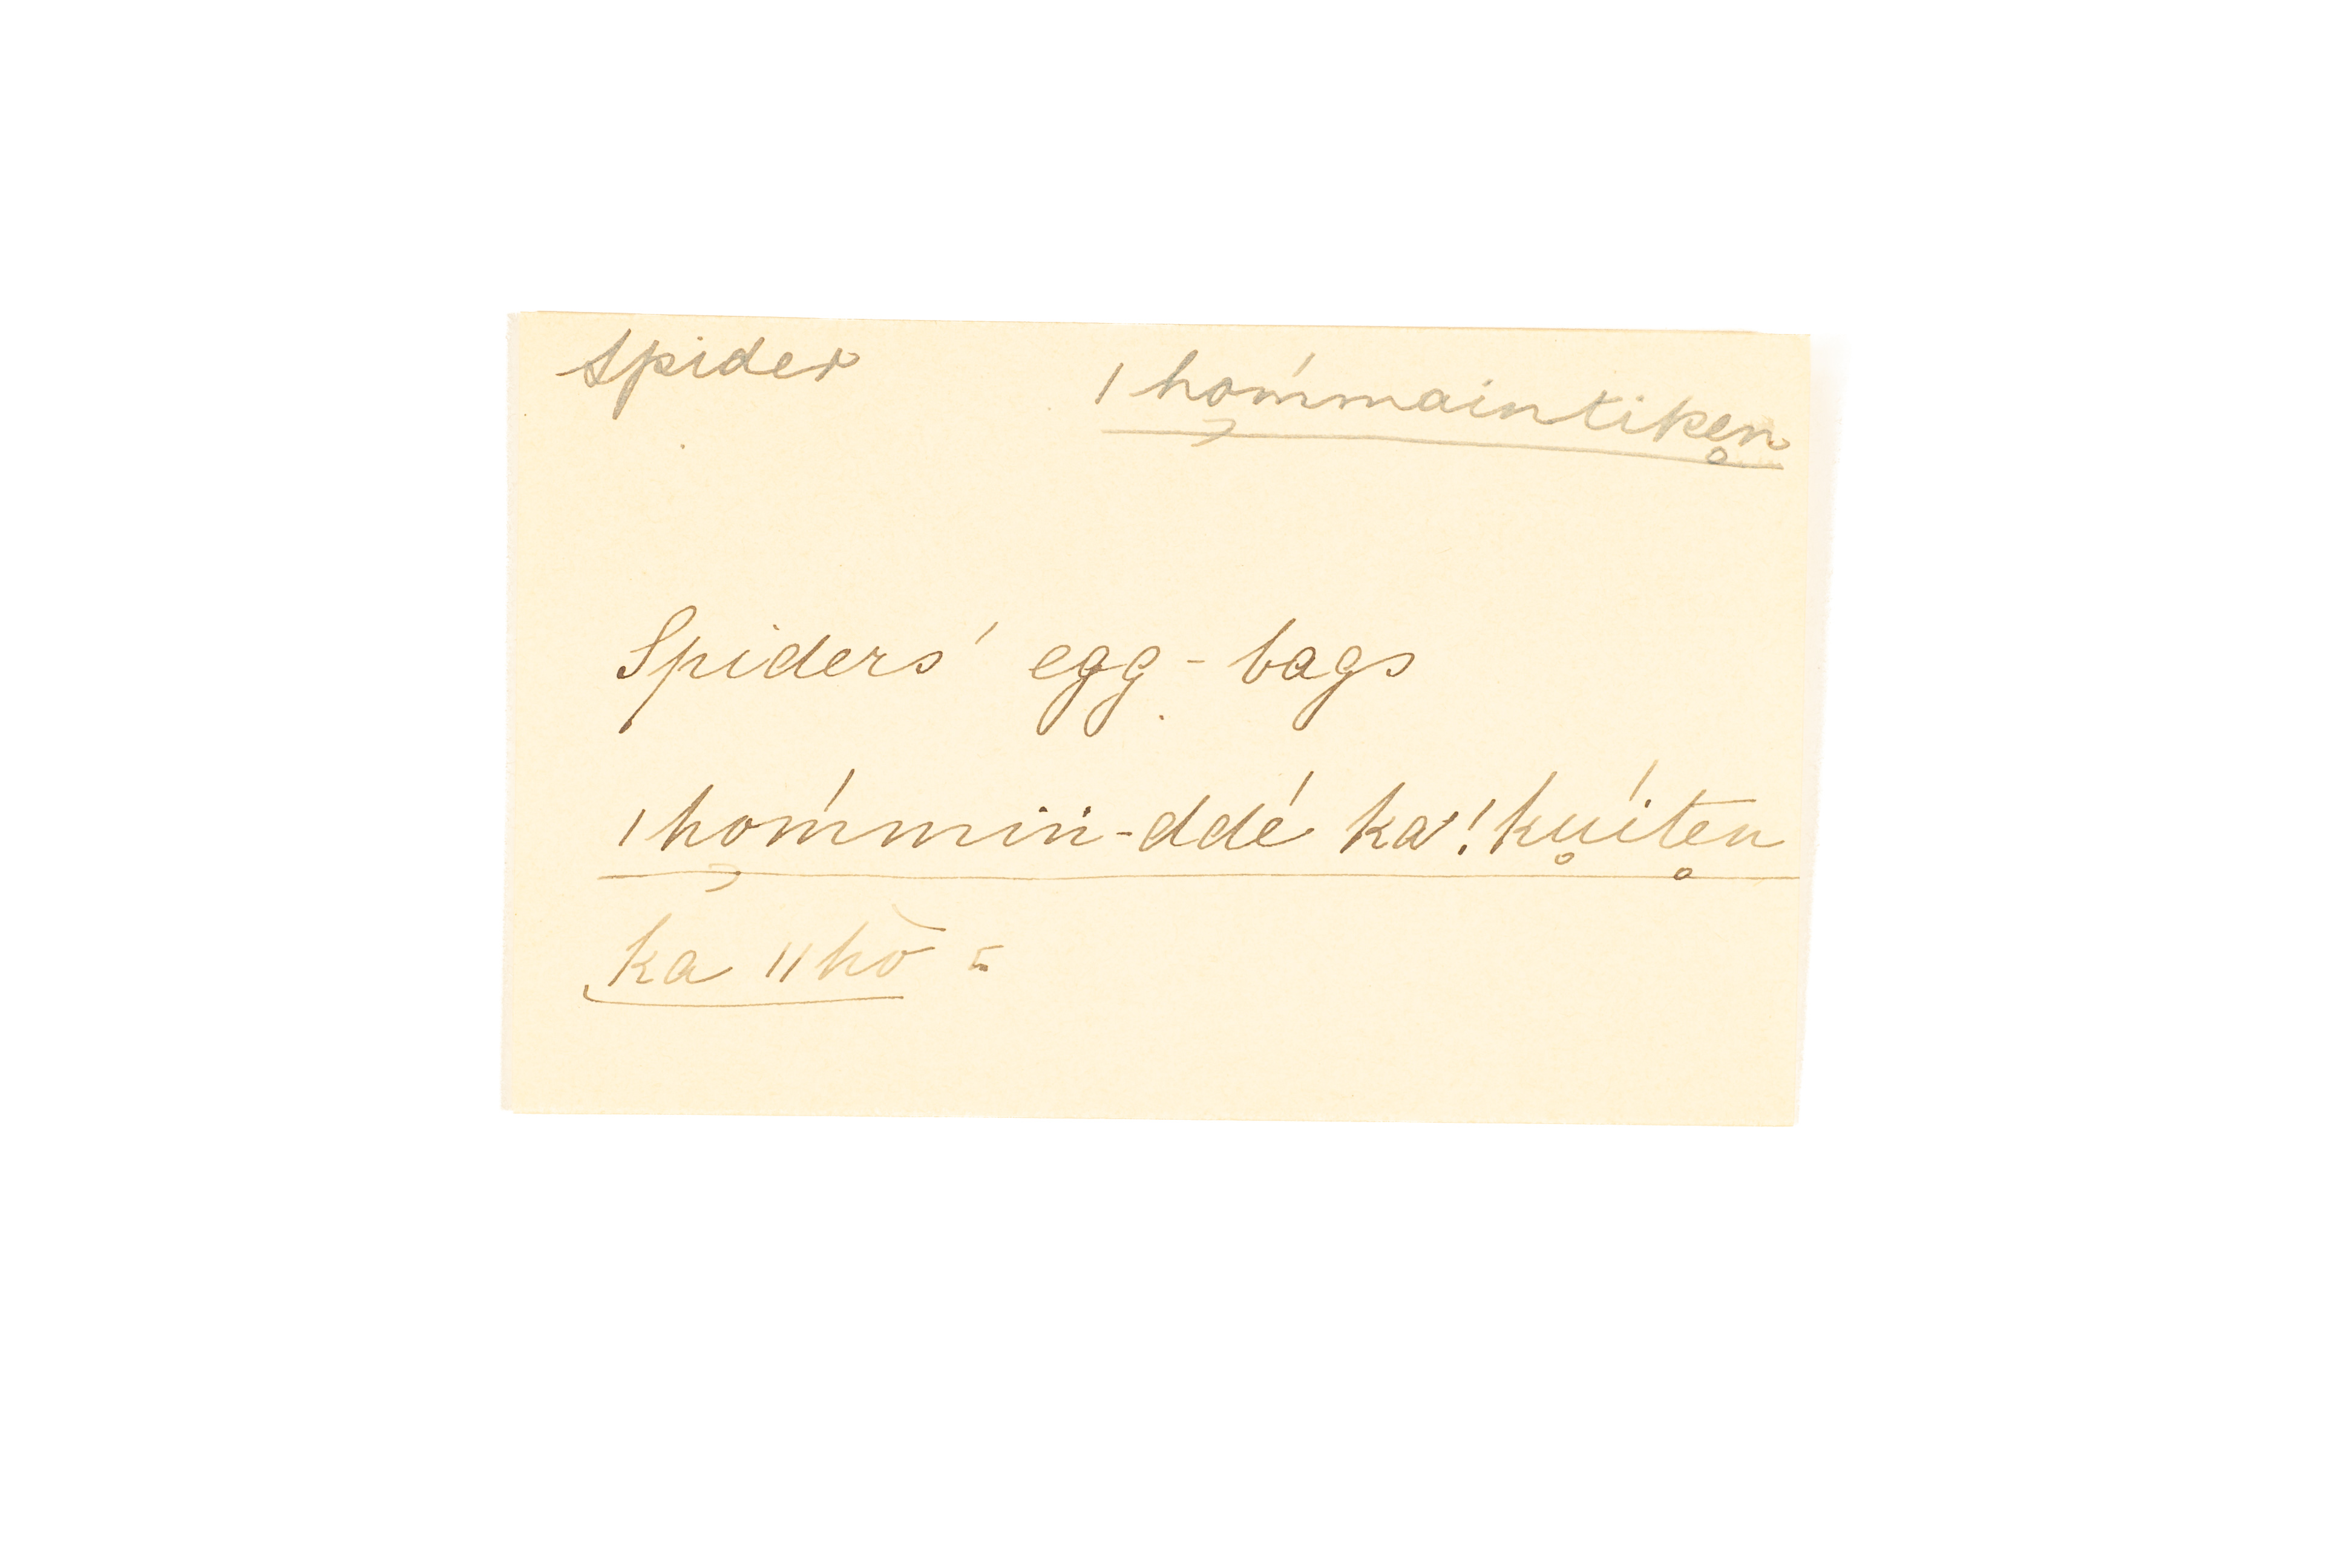 Spider ǀhómmaintiken̥
Spiders' egg-bags
ǀhómmin̈-ddé ka ǃku̥íte̥n
ka ǁhò =